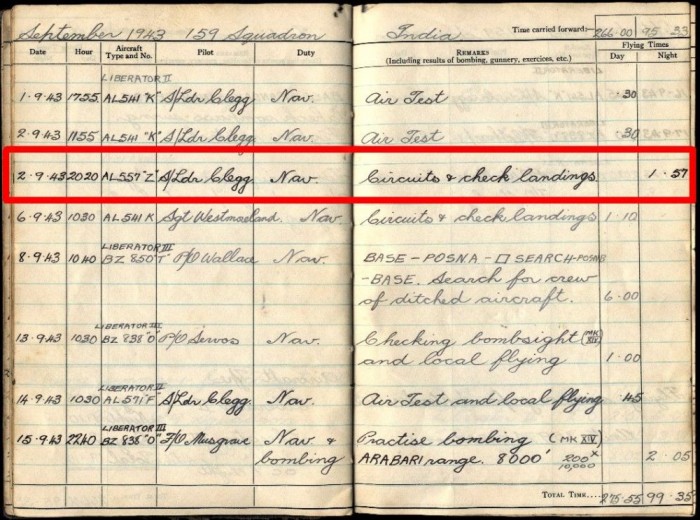 September 1943 159 Squadron India Time carried forward:— 266.00 95.33
Date Hour Aircraft Type and No. Pilot Duty REMARKS (Including results of bombing, gunnery, exercises, etc.) Flying Times Day Night
LIBERATOR II
1.9.43 1755 AL541 "K" S/Ldr Clegg Nav. Air Test .30
2.9.43 1155 AL541 "K" S/Ldr Clegg Nav. Air Test .30
2.9.43 2020 AL557 "Z" S/Ldr Clegg Nav. Circuits & check landings 1.57
6.9.43 1030 AL541 K Sgt Westmoreland Nav. Circuits & check landings 1.10
LIBERATOR III
8.9.43 1040 BZ 850 "T" P/O Wallace Nav. BASE - POSNA - □ SEARCH - POSNB
- BASE. Search for crew
of ditched aircraft. 6.00
LIBERATOR III
13.9.43 1030 BZ 838 "O" P/O Servos Nav. Checking bombsight (MK XIV)
and local flying 1.00
LIBERATOR II
14.9.43 1030 AL571 "F" S/Ldr Clegg. Nav. Air Test and local flying .45
LIBERATOR III
15.9.43 2240 BZ 838 "O" F/O Musgrave Nav & Practise bombing (MK XIV)
bombing ARABARI range. 8000' 200x 10,000 2.05
TOTAL TIME.... 275.55 99.35